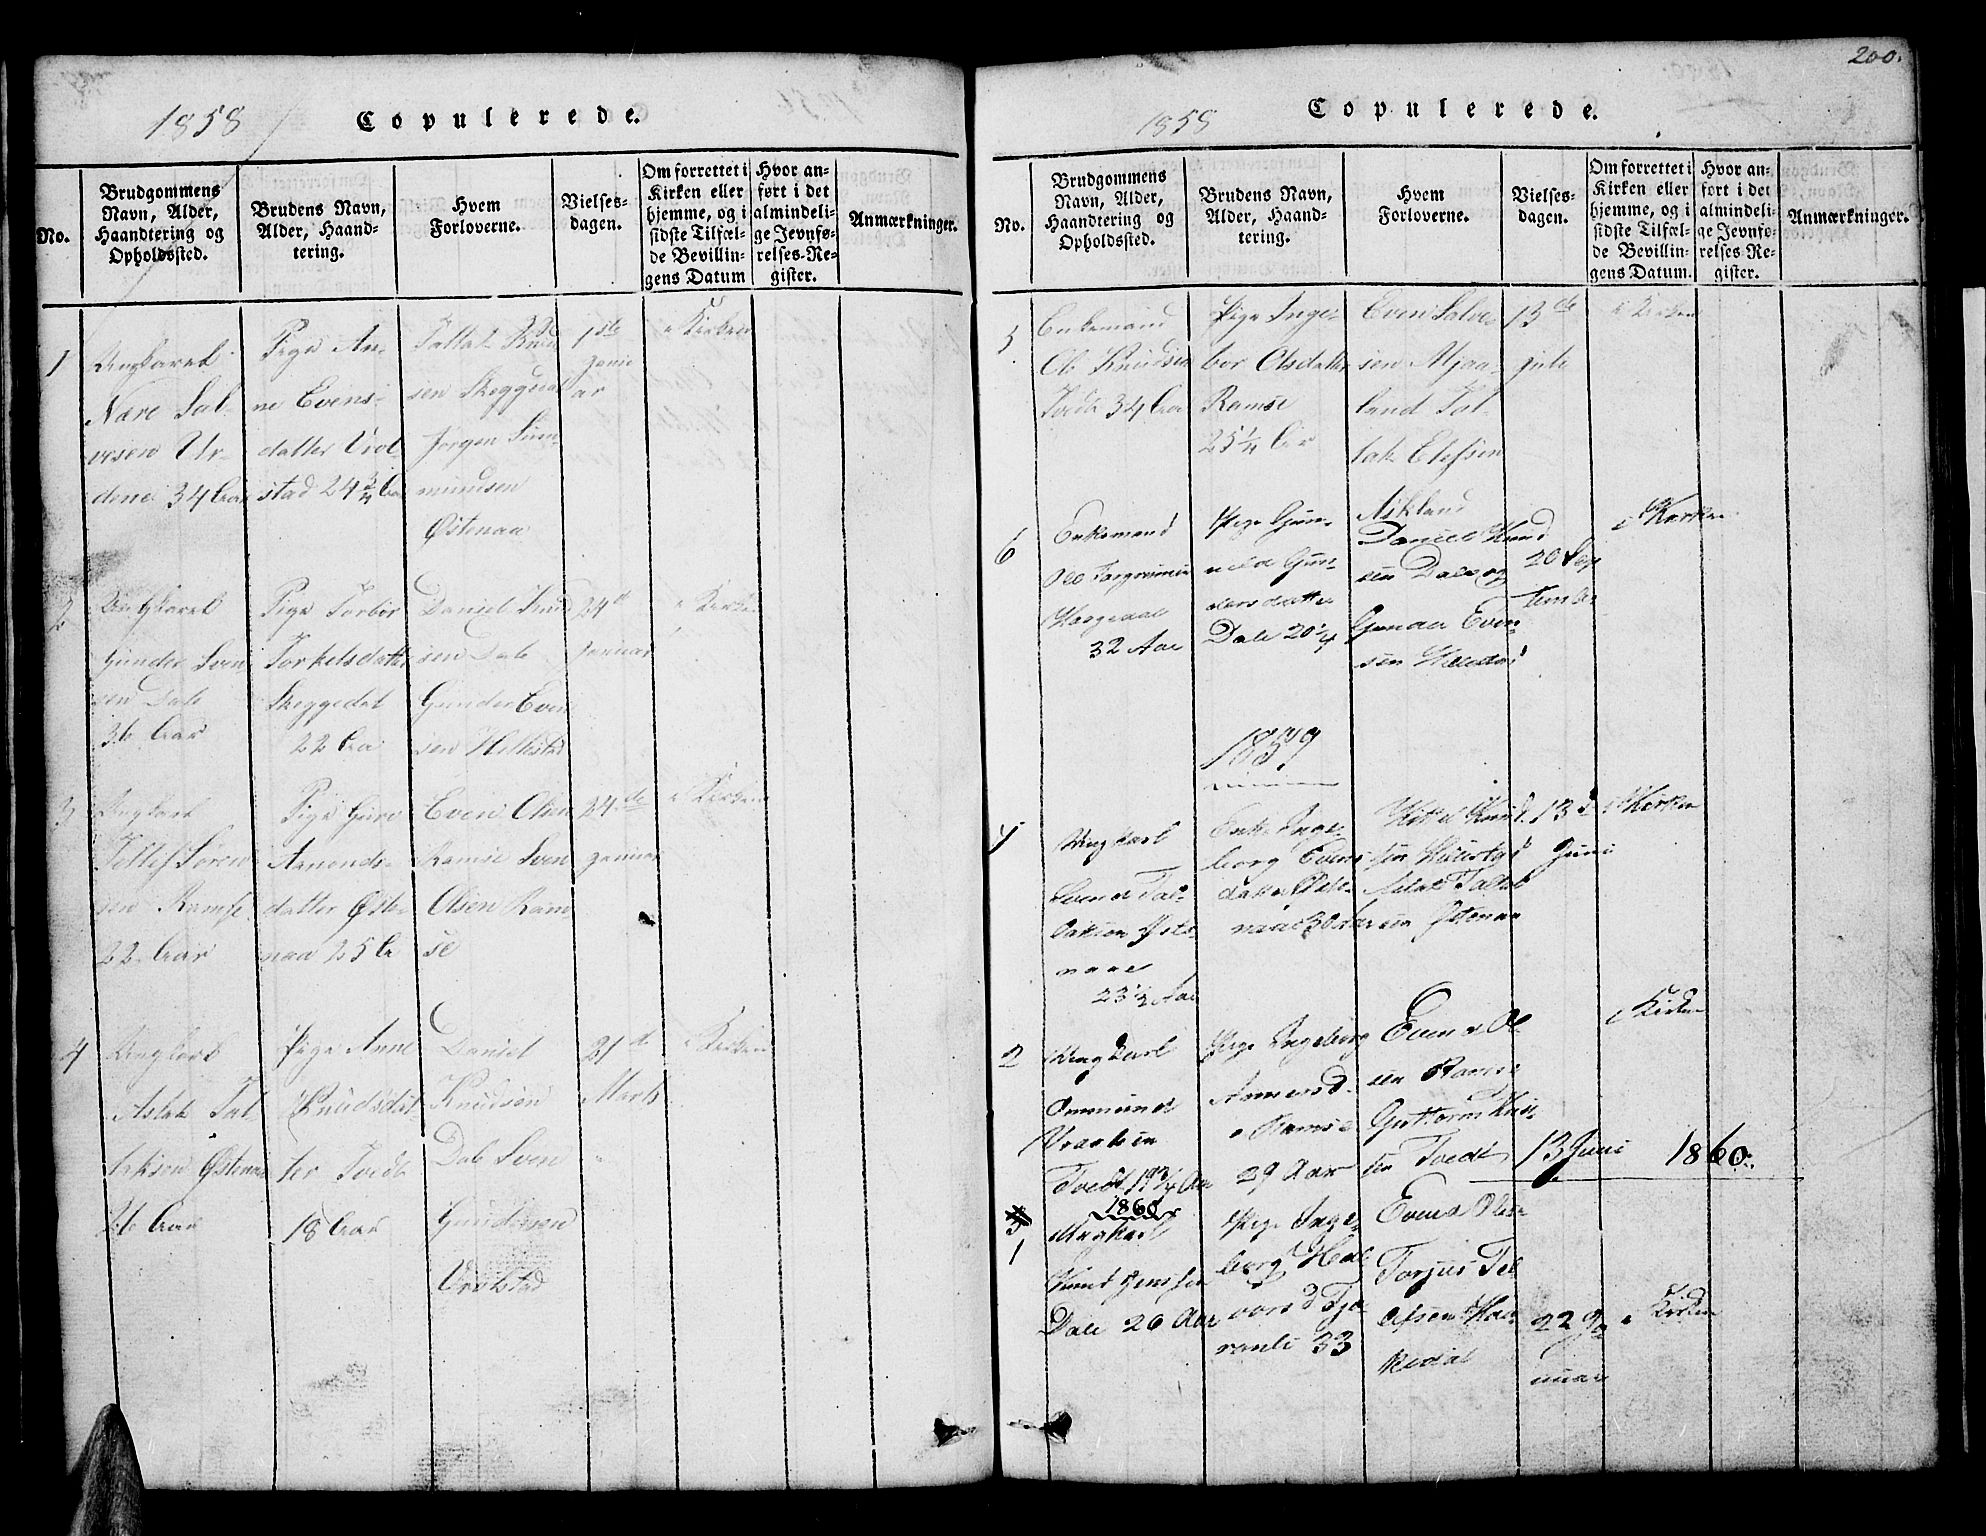 1858 Copulerede.
No.
Brudgommens
Navn, Alder,
Haandtering og
Opholdssted.
Brudens Navn,
Alder, Haand-
tering.
Hvem
Forloverne.
Vielses-
dagen.
Om forrettet i
Kirken eller
hjemme, og i
sidste Tilfæl-
de Bevillin-
gens Datum
Hvor an-
ført i det
almindeli-
ge Jevnfø-
relses-Re-
gister.
Anmærkninger.
1
Ungkarel
Nare Sal-
vesen Ur-
dene 34 Aar
Pige An-
ne Evens-
datter Vrol-
stad 24 3/4 Aar
Tallak Knud
sen Skeggedal
Jorgen Sum-
mundsen
Østenaa
1ste
Janu
ar
i Kirken
2
Ungkarel
Gunder Sven
sen Dale
36 Aar
Pige Torbor
Torkelsdatter
Skeggedal
22 Aar
Daniel Knud
sen Dale
Gunder Even
sen Hillestad
24de
Januar
i Kirken
3
Ungkarl
Tellef Soren
sen Ramse
22 Aar
Pige Guro
Amonds-
datter Øste-
naa 25 Aar
Even Olsen
Ramse Sven
Olsen Ram-
se
24de
Januar
i Kirken
4
Ungkarl
Aslak Tal
laksen Østenaa
26 Aar
Pige Anne
Knudsdat-
ter Tvedt
18 Aar
Daniel
Knudsen
Dale Sven
Gundersen
Vrolstad
21de
Marts
i Kirken
200.
1858 Copulerede.
No.
Brudgommens
Navn, Alder,
Haandtering og
Opholdssted.
Brudens Navn,
Alder, Haand-
tering.
Hvem
Forloverne.
Vielses-
dagen.
Om forrettet i
Kirken eller
hjemme, og i
sidste Tilfæl-
de Bevillin-
gens Datum.
Hvor an-
ført i det
almindeli-
ge Jevnfø-
relses-Re-
gister.
Anmærkninger.
5
Enkemand
Ole Knudsen
Tvedt 34 Aar
Pige Inge-
bor Olsdatter
Ramse
25 1/4 Aar
Even Salve-
sen Mjaa-
land Tal-
lak Elefsen
Askland
13de
Juli
i Kirken
6
Enkemand
Ole Torgrimsen
32 Aar
Pige Gun-
nild Gun-
dersdatter
Dale 20 1/4
Daniel Knud
sen Dale og
Gunder Even-
sen
20 Sep
tember
i Kirken
1859
1
Ungkarl
Svend Tal-
laksen Øste-
naae
23 1/2 Aar
Enke Inge-
borg Evens
datter Øste-
naae 30 Aar
Kittel Knud-
sen
Aslak Tallak
sen Østenaa
13d
Juni
i Kirken
2
Ungkarl
Ommund
Vraalsen
Tvedt 19 3/4 Aar
Pige Ingeborg
Anmersd.
Ramse
29 Aar
Even Ol
sen Ramse
Guttorm Knu-
sen Tvedt
13 Juni
i Kirken
1860.
1
1860
Ungkarl
Knut Jenssen
Dale 26 Aar
Pige Inge-
borg Hal
vors d Tjø-
ranli 33
Even Olsen
Torjus Tel
lefsen
22 Ja
nuar
i Kirken